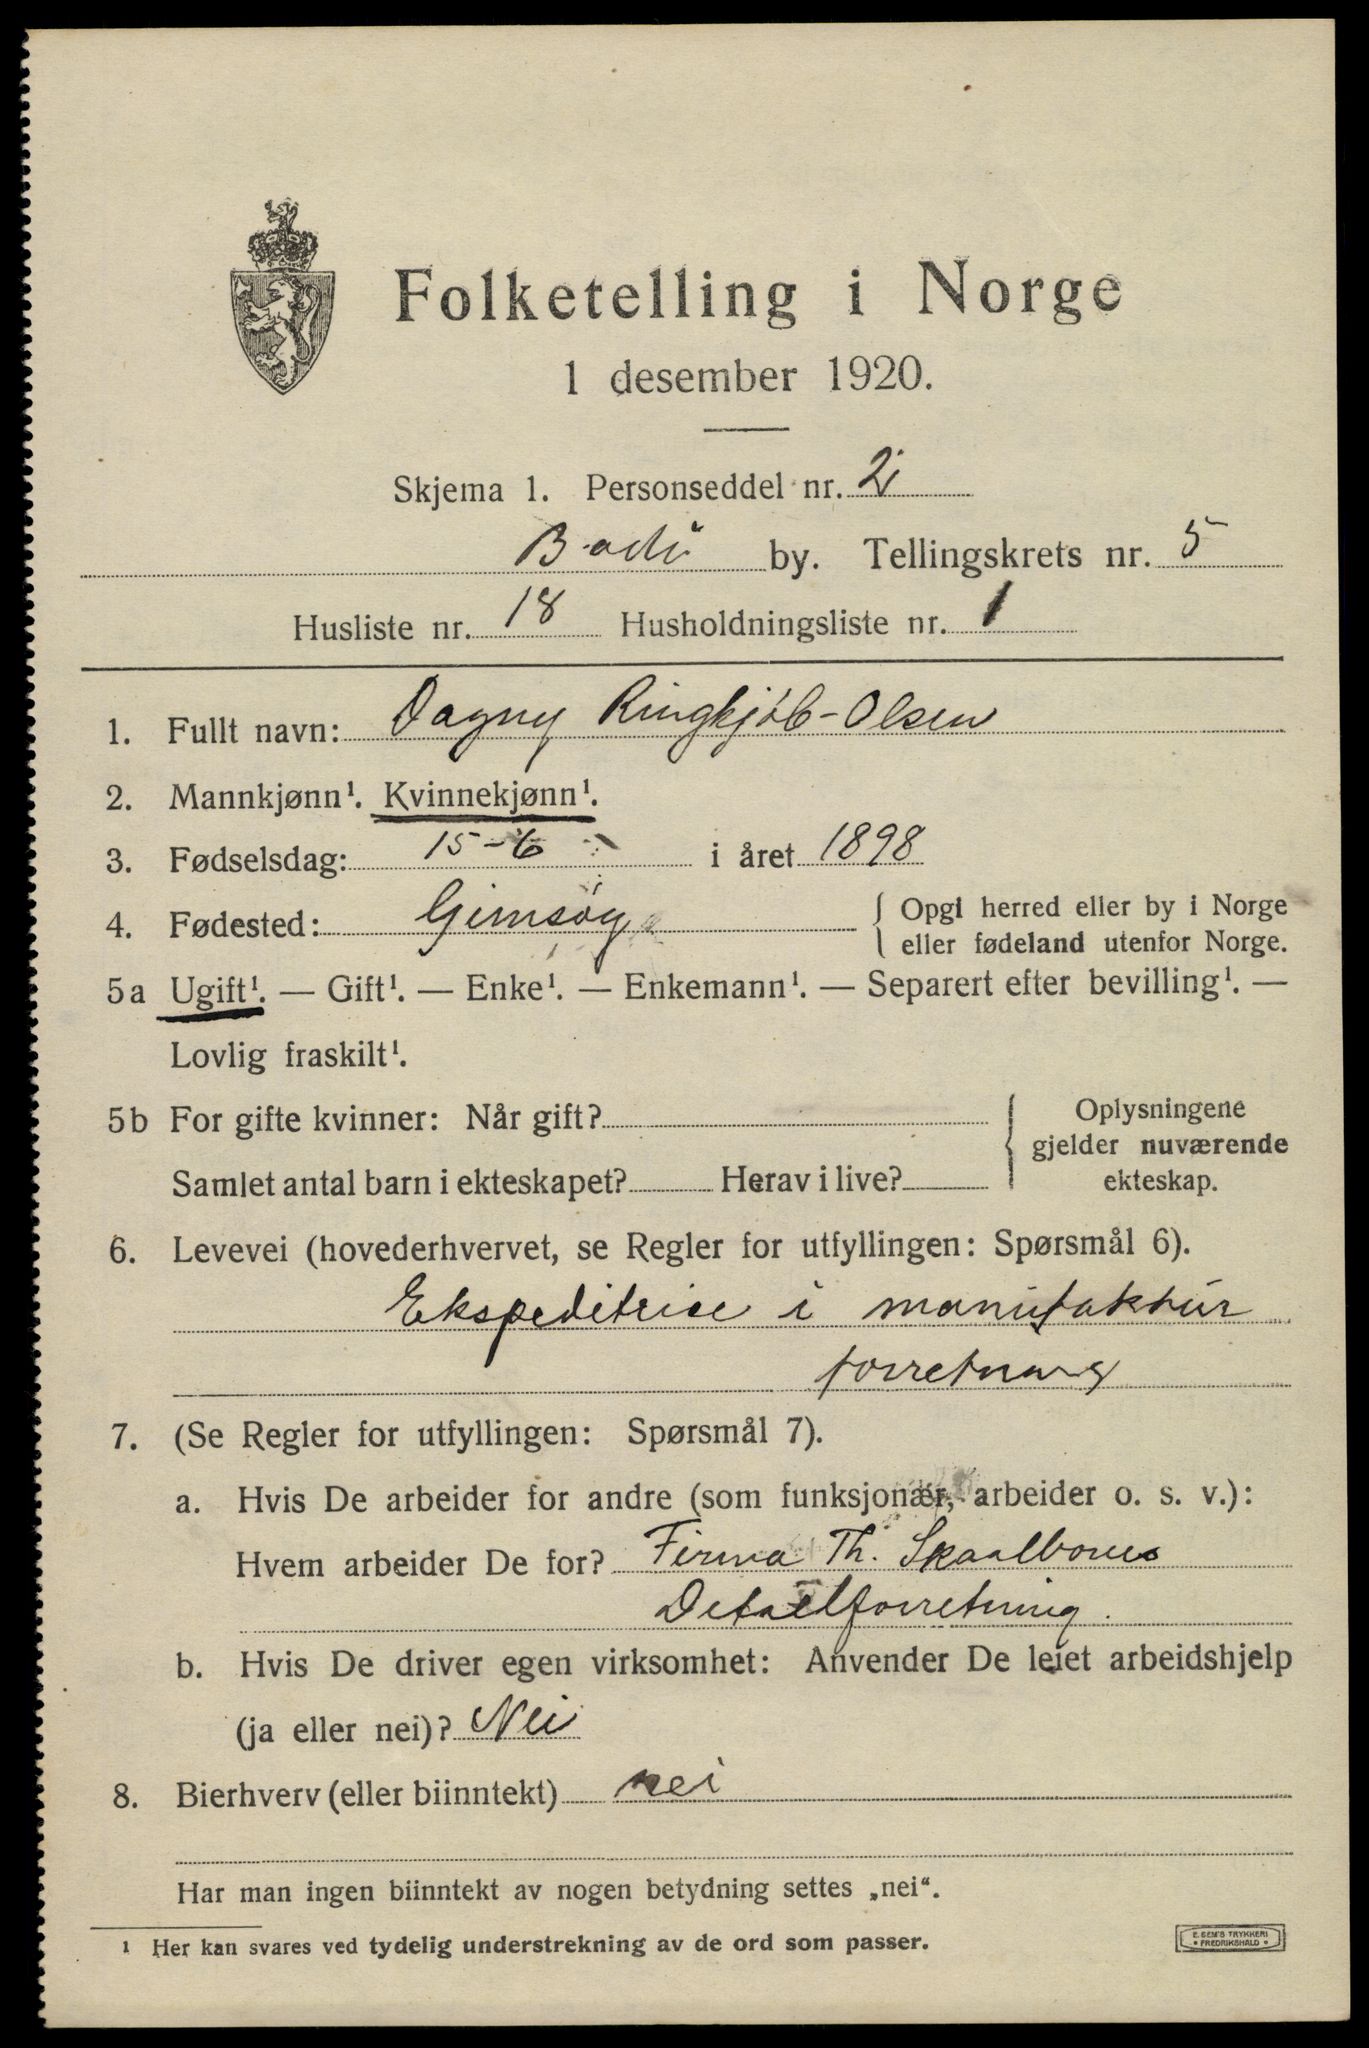 Folketelling i Norge
1 desember 1920.
Skjema 1. Personseddel nr. 2
Bodö by. Tellingskrets nr. 5
Husliste nr. 18 Husholdningsliste nr. 1
1. Fullt navn: Dagny Ringkjöb-Olsen
2. Mannkjønn¹. Kvinnekjønn¹.
3. Fødselsdag: 15-6 i året 1898
4. Fødested: Gimsöy { Opgi herred eller by i Norge
eller fødeland utenfor Norge.
5a Ugift¹. — Gift¹. — Enke¹. — Enkemann¹. — Separert efter bevilling¹. —
Lovlig fraskilt¹.
5b For gifte kvinner: Når gift? { Oplysningene
gjelder nuværende
Samlet antal barn i ekteskapet? Herav i live? ekteskap.
6. Levevei (hovederhvervet, se Regler for utfyllingen: Spørsmål 6).
Ekspeditrise i manufaktur
forretning
7. (Se Regler for utfyllingen: Spørsmål 7).
a. Hvis De arbeider for andre (som funksjonær, arbeider o. s. v.):
Hvem arbeider De for? Firma Th. Skaalbones
Detaelforretning.
b. Hvis De driver egen virksomhet: Anvender De leiet arbeidshjelp
(ja eller nei)? Nei
8. Bierhverv (eller biinntekt) nei
Har man ingen biinntekt av nogen betydning settes „nei“.
¹ Her kan svares ved tydelig understrekning av de ord som passer.
E. SEM'S TRYKKERI
• FREDRIKSHALD •